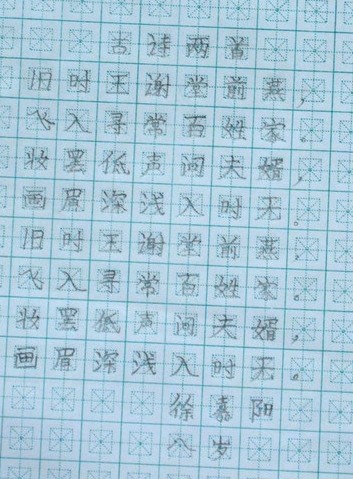 古诗两首
旧时王谢堂前燕，
飞入寻常百姓家。
妆罢低声问夫婿，
画眉深浅入时无。
旧时王谢堂前燕，
飞入寻常百姓家。
妆罢低声问夫婿，
画眉深浅入时无。
徐嘉阳
八岁